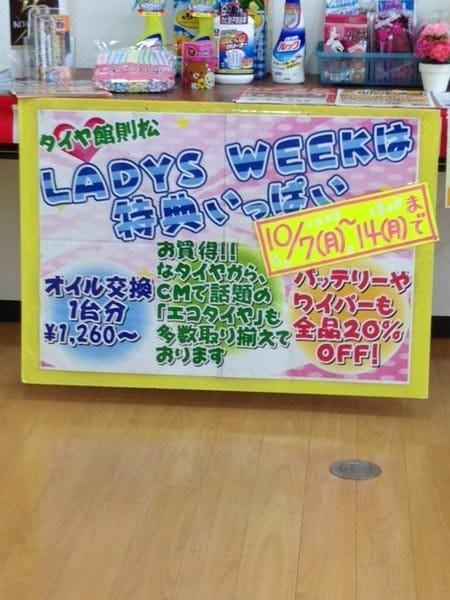 タイヤ館則松
LADYS WEEKは
特典いっぱい
10/7(月)～14(月)まで
オイル交換
1台分
¥1,260～
お買得!!
なタイヤから、
CMで話題の
「エコタイヤ」も
多数取り揃えて
おります
バッテリーや
ワイパーも
全品20%
OFF!
ルック